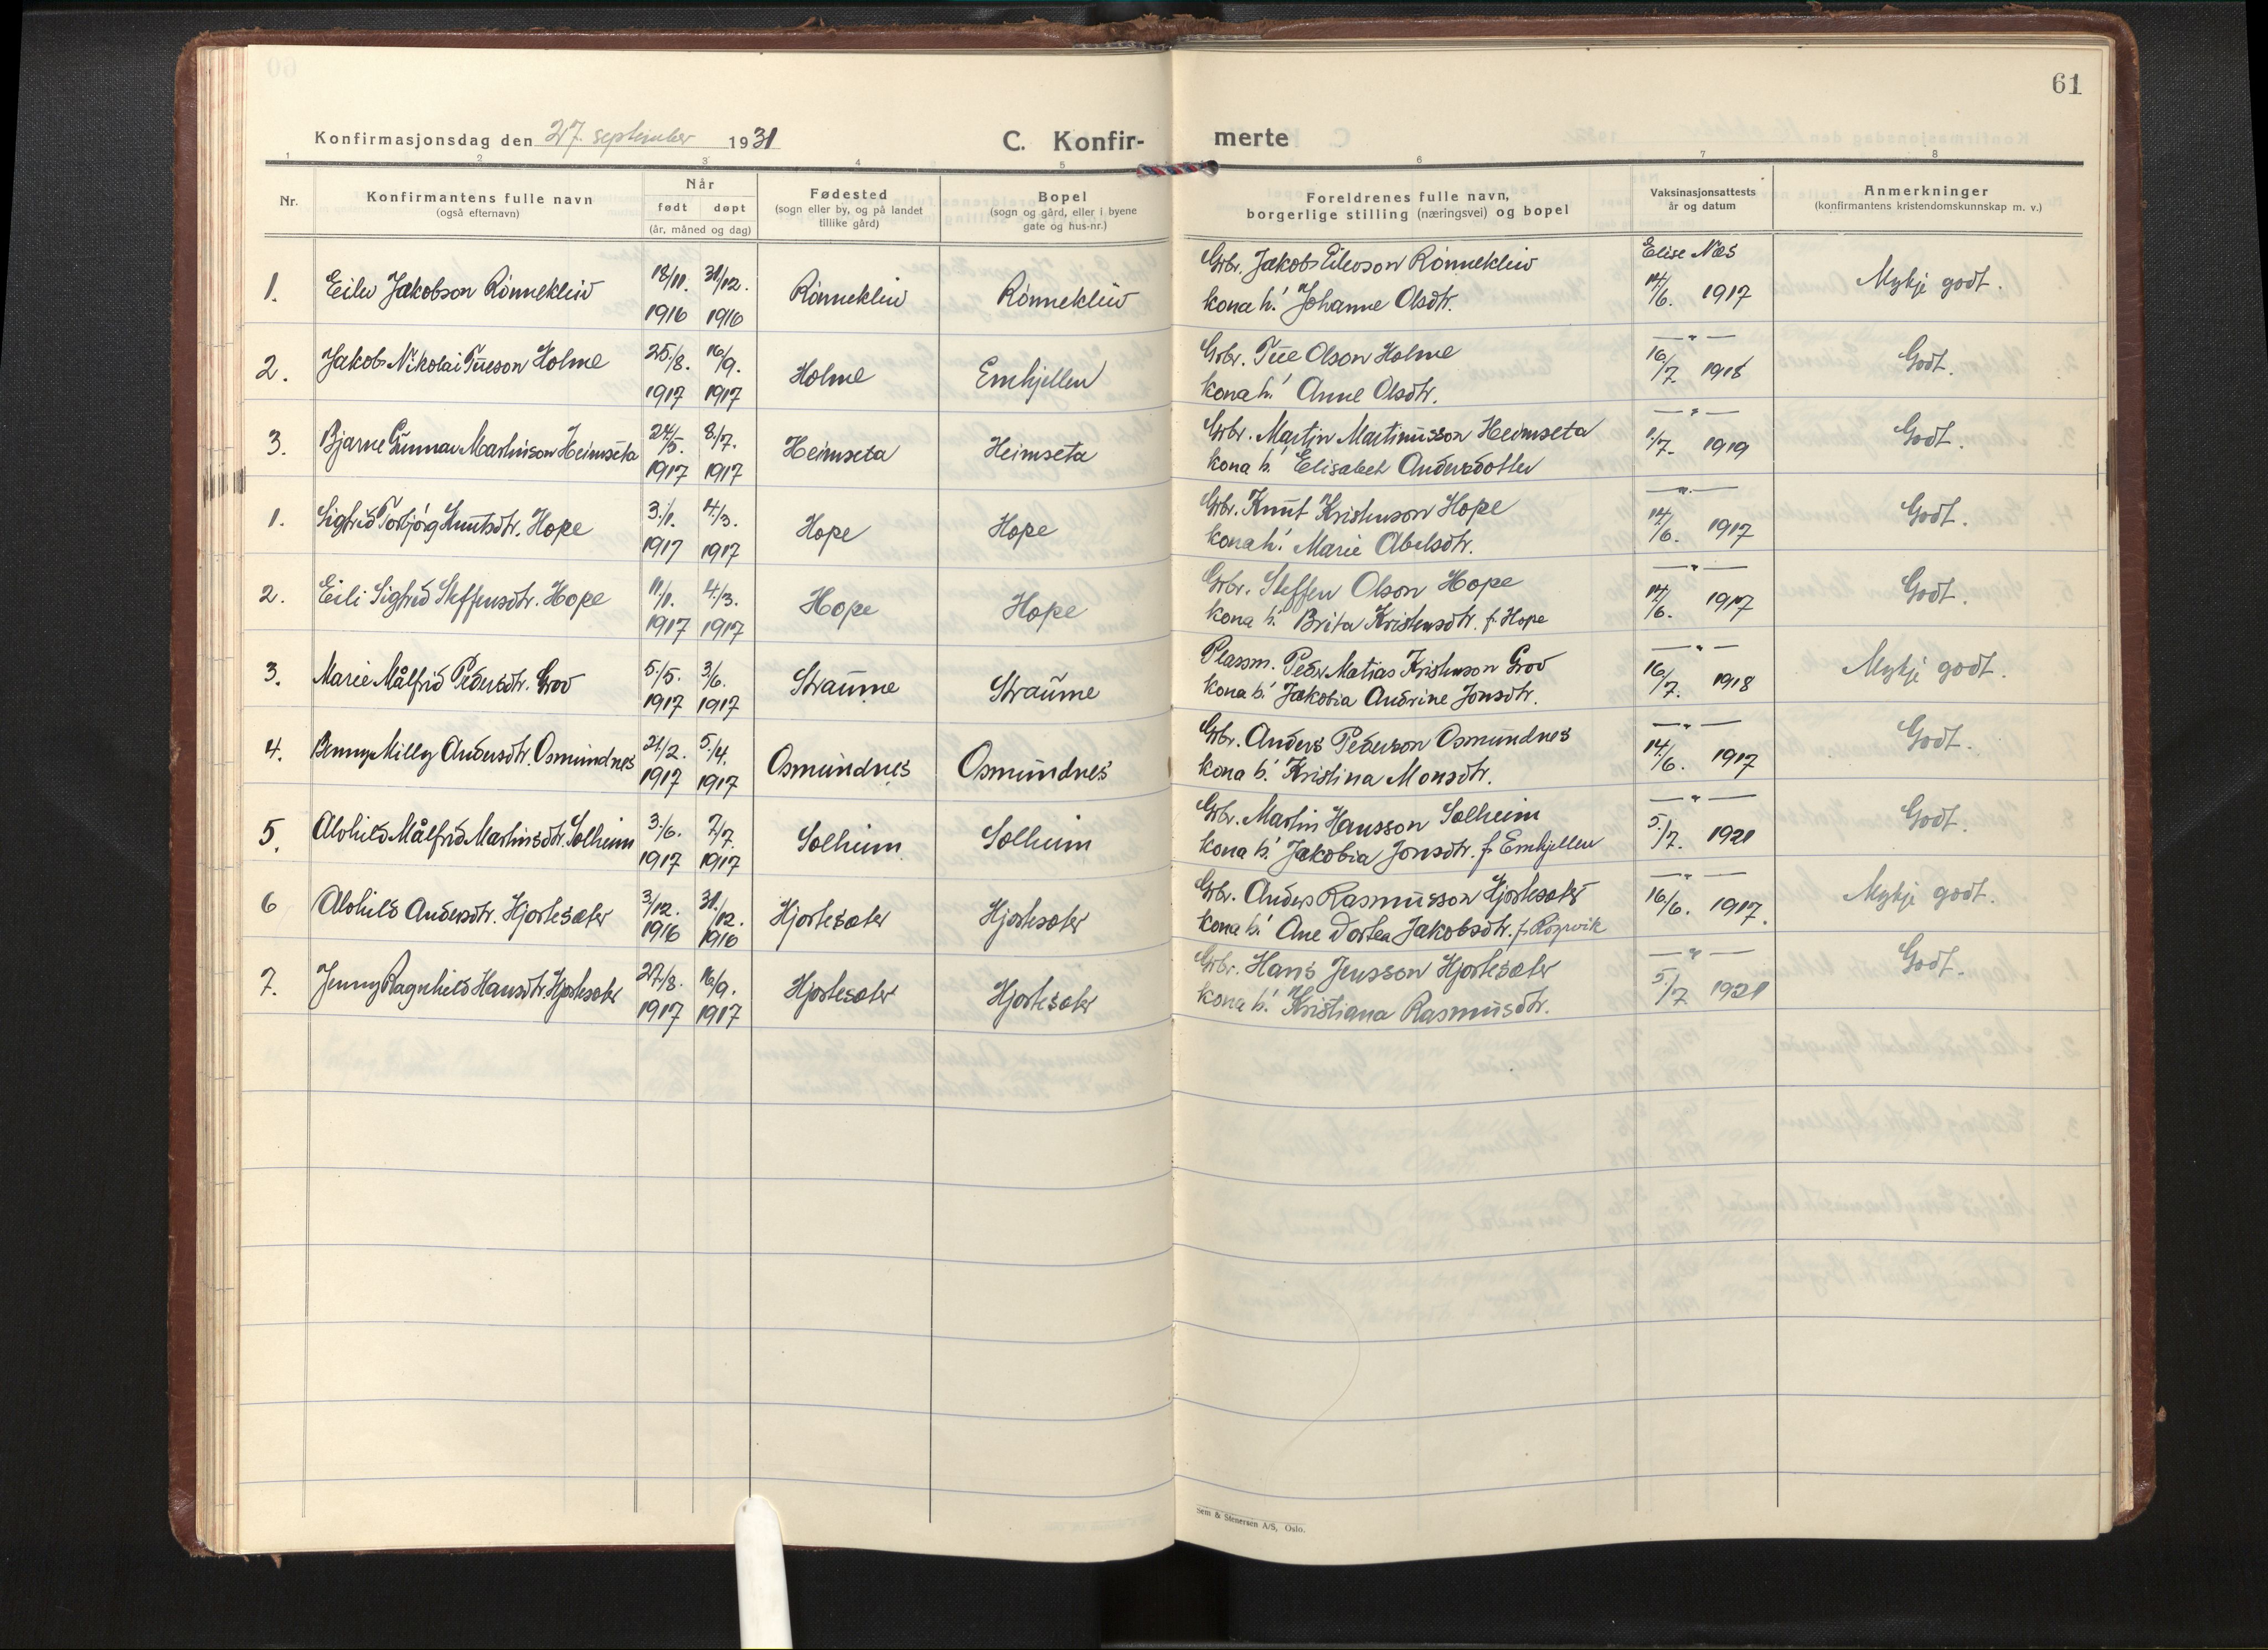 61
Konfirmasjonsdag den 27. september 1931
C. Konfir-
merte
1 2 3 4 5 6 7 8
Nr.
Konfirmantens fulle navn
(også efternavn)
Når
født døpt
(år, måned og dag)
Fødested
(sogn eller by, og på landet
tillike gård)
Bopel
(sogn og gård, eller i byene
gate og hus-nr.)
Foreldrenes fulle navn,
borgerlige stilling (næringsvei) og bopel
Vaksinasjonsattests
år og datum
Anmerkninger
(konfirmantens kristendomskunnskap m. v.)
1. Eilev Jakobson Rønnekleiv 18/11. 1916 31/12. 1916 Rønnekleiv Rønnekleiv
Gbr. Jakob Eilevson Rønnekleiv Elise Næs
kona h! Johanne Olsdtr. 14/6. 1917 Mykje godt.
2. Jakob Nikolai Tueson Holme 25/8. 1917 16/9. 1917 Holme Emhjellen
Gbr. Tue Olson Holme — " —
kona h! Anne Olsdtr. 16/7 1918 Godt.
3. Bjarne Gunnar Martinson Heimseta 24/5. 1917 8/7. 1917 Heimseta Heimseta
Gbr. Martin Martinusson Heimseta — " —
kona h! Elisabet Andersdotter 1/7- 1919 Godt.
1. Sigfrid Torbjørg Knutsdtr. Hope 3/1. 1917 4/3. 1917 Hope Hope
Gbr. Knut Kristenson Hope — " —
kona h! Marie Abelsdtr. 14/6. 1917 Godt.
2. Eili Sigfrid Steffensdtr. Hope 11/1. 1917 4/3. 1917 Hope Hope
Gbr. Steffen Olson Hope — " —
kona h! Brita Kristensdtr. f. Hope 14/6. 1917 Godt.
3. Marie Målfrid Pedersdtr. Grov 5/5. 1917 3/6. 1917 Straume Straume
Plassm. Peder Matias Kristenson Grov — " —
kona h! Jakobia Andrine Jonsdtr. 16/7. 1918 Mykje godt.
4. Benny Milly Andersdtr. Osmundnes 21/2. 1917 5/4. 1917 Osmundnes Osmundnes
Gbr. Anders Pederson Osmundnes — " —
kona h! Kristina Monsdtr. 14/6. 1917 Godt.
5. Alvhild Målfrid Martinsdtr. Solheim 3/6. 1917 7/7. 1917 Solheim Solheim
Gbr. Martin Hansson Solheim — " —
kona h! Jakobia Jonsdtr. f. Emhjellen 5/7. 1921 Godt.
6 Alvhild Andersdtr. Hjortesæter 3/12. 1916 31/12. 1916 Hjortesæter Hjortesæter
Gbr. Anders Rasmusson Hjortesæter — " —
kona h! Ane Dortea Jakobsdtr. 16/6. 1917. Mykje godt.
7. Jenny Ragnhild Hansdtr. Hjortesæter 27/8. 1917 16/9. 1917 Hjortesæter Hjortesæter
Gbr. Hans Jensson Hjortesæter — " —
kona h! Kristiana Rasmusdtr. 5/7 1921 Godt.
Sem & Stenersen A/S, Oslo.